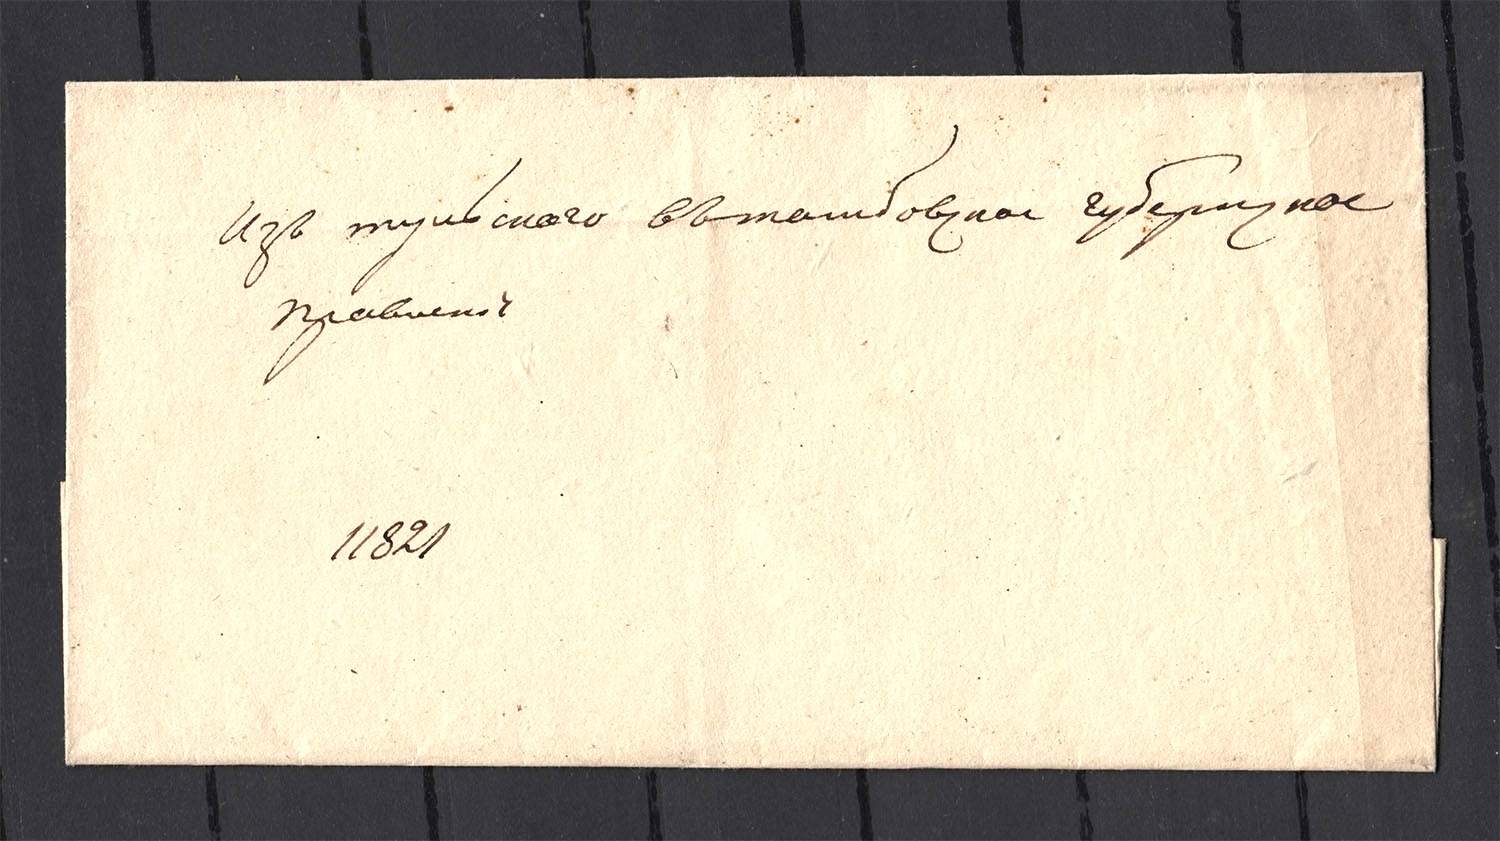 Изъ тульского въ тамбовское губернское
правление
11821